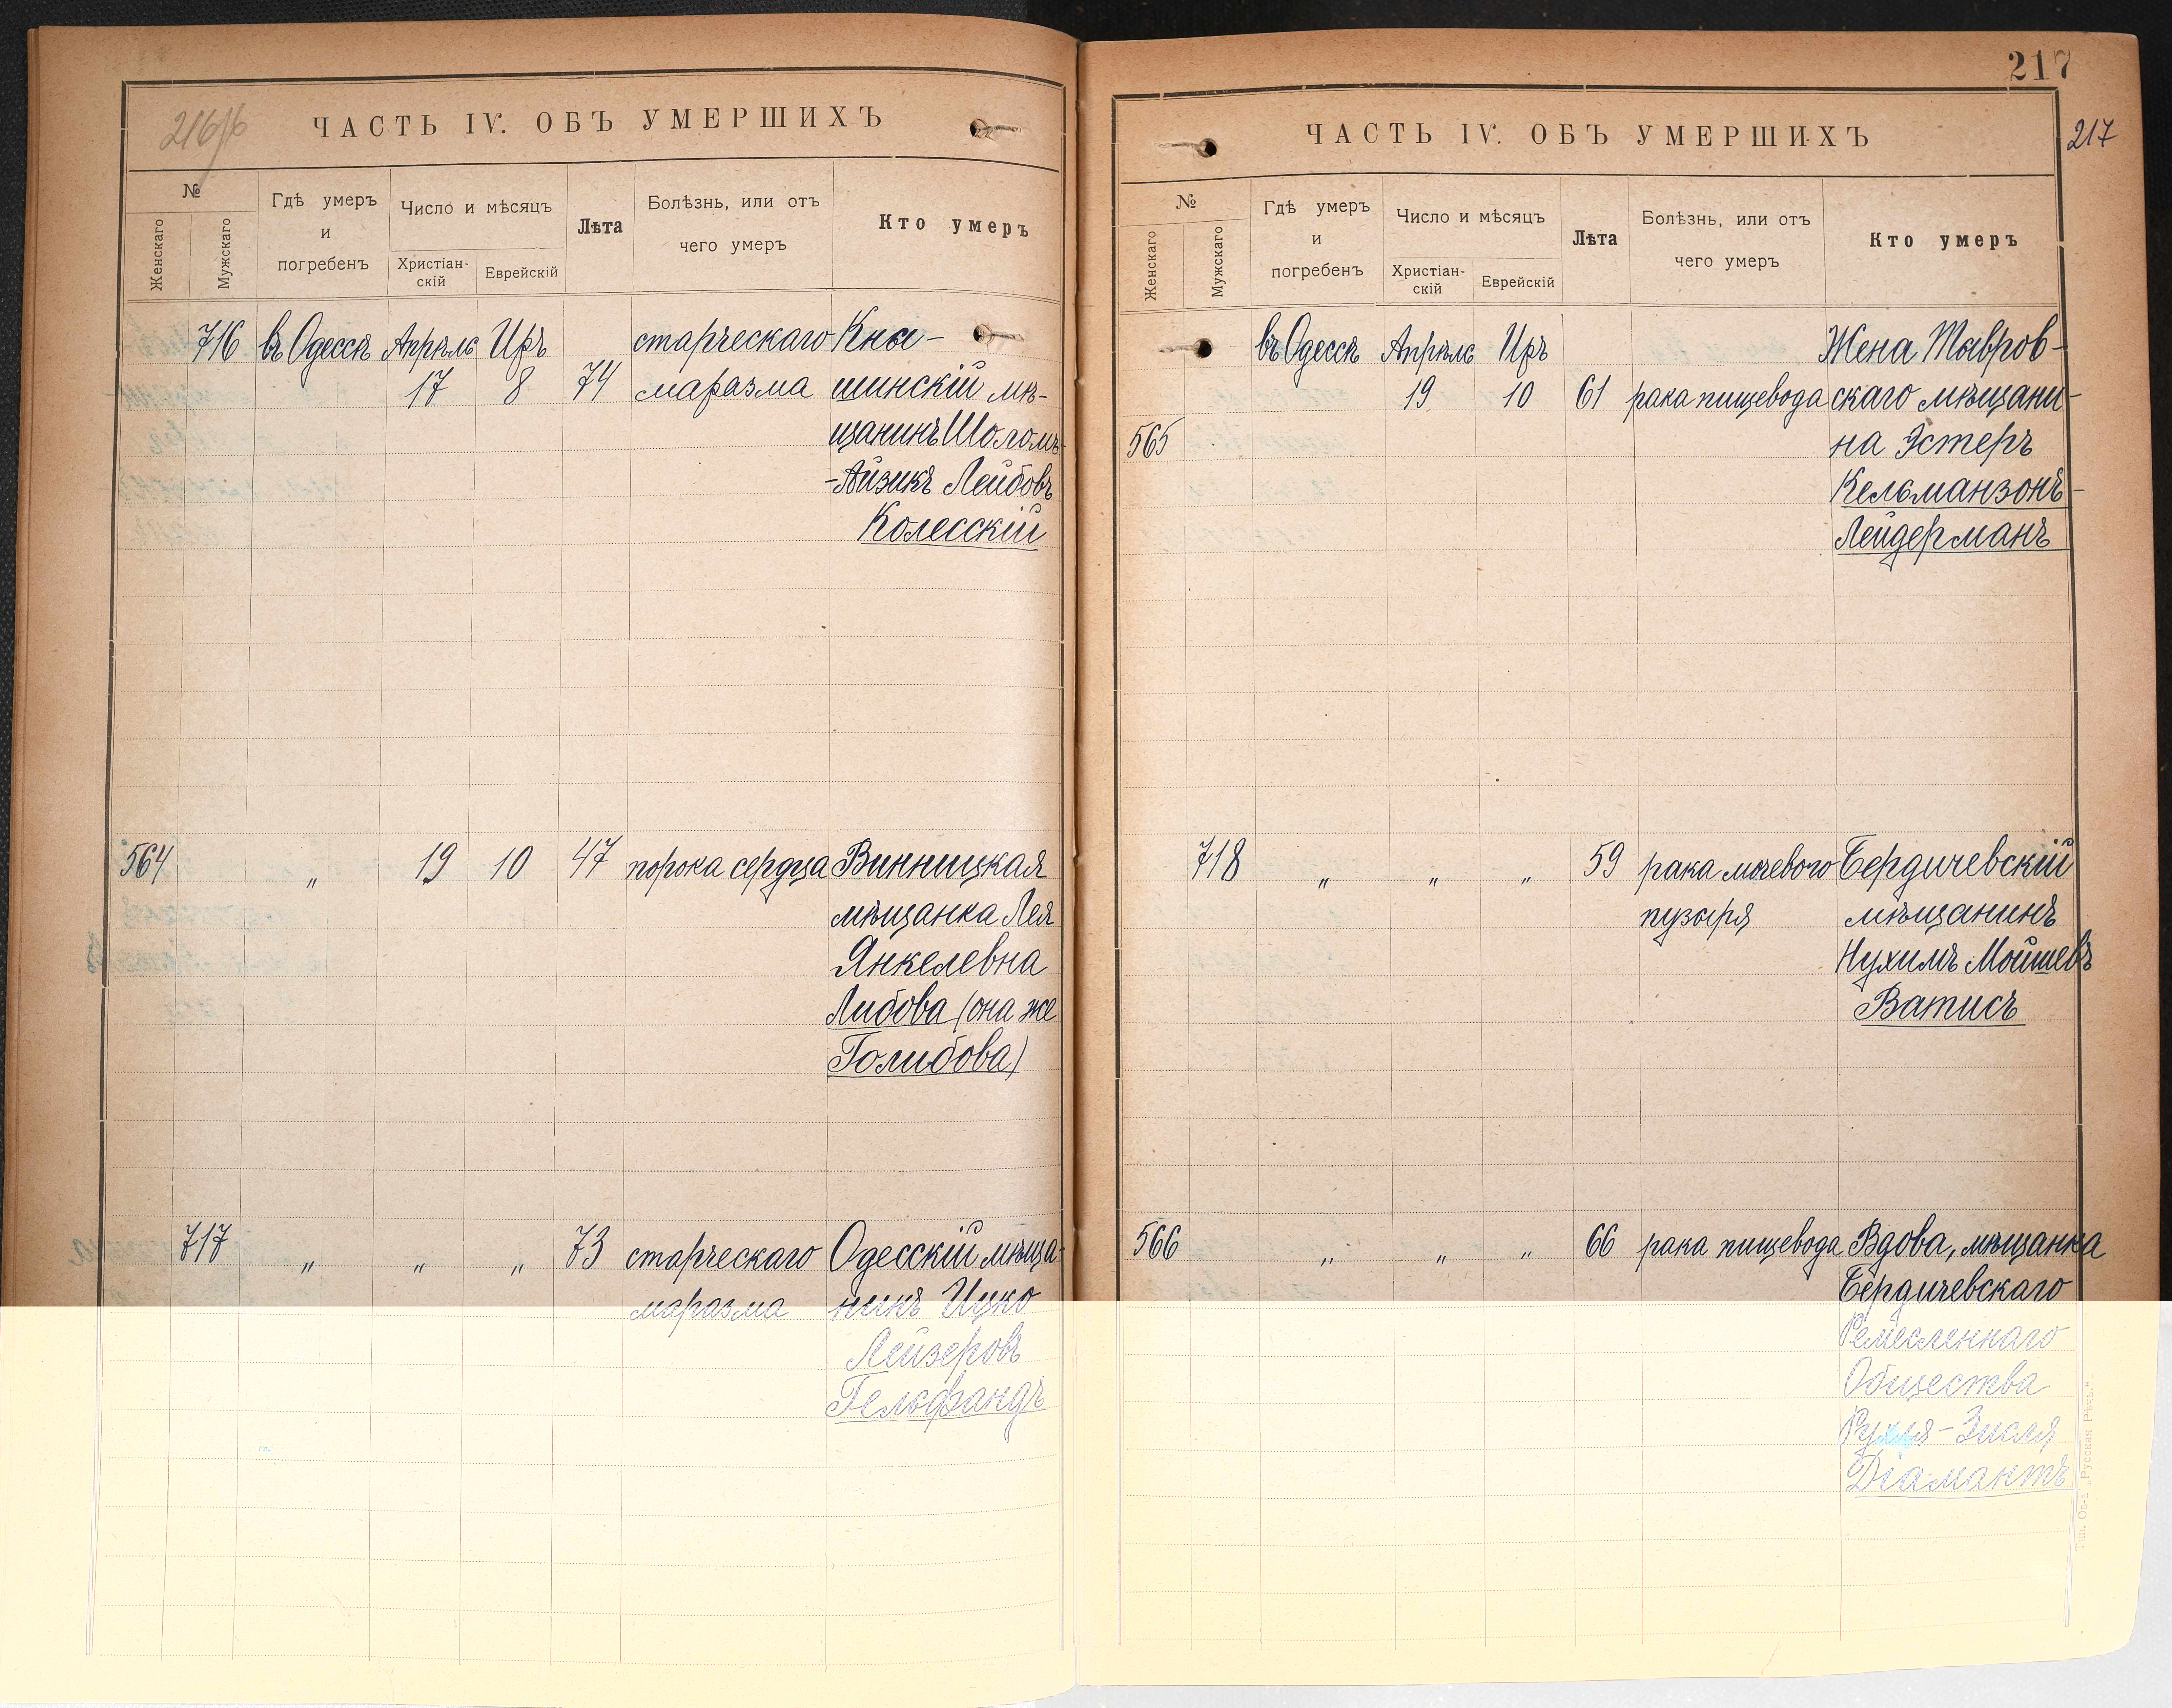 216
ЧАСТЬ IV. ОБЪ УМЕРШИХЪ
№
Женскаго
Мужскаго
Гдѣ умеръ
и
погребенъ
Число и мѣсяцъ
Христіан-
скій
Еврейскій
Лѣта
Болѣзнь, или отъ
чего умеръ
Кто умеръ
716 въ Одессѣ Апрѣль Иръ старческаго Кны-
17 8 74 маразма шинскій мѣ-
щанинъ Шоломъ-
-Айзикъ Лейбовъ
Колесскій
564 " 19 10 47 порока сердца Винницкая
мѣщанка Лея
Янкелевна
Либова (она же
Голибова)
717 " " " 73 старческаго Одесскій мѣща-
маразма нинъ Ицко
Лейзеровъ
Гельфандъ
217
217
ЧАСТЬ IV. ОБЪ УМЕРШИХЪ
№
Женскаго
Мужскаго
Гдѣ умеръ
и
погребенъ
Число и мѣсяцъ
Христіан-
скій
Еврейскій
Лѣта
Болѣзнь, или отъ
чего умеръ
Кто умеръ
въ Одессѣ Апрѣль Иръ Жена Тавров-
19 10 61 рака пищевода скаго мѣщани-
565 на Эстеръ
Кельманзонъ-
Лейдерманъ
718 " " " 59 рака мочевого Бердичевскій
пузыря мѣщанинъ
Нухимъ Мойшевъ
Ватисъ
566 " " " 66 рака пищевода Вдова, мѣщанка
Бердичевскаго
Ремесленнаго
Общества
Рухля-Зисля
Діамантъ
Тип. Об-а „Русская Рѣчь."